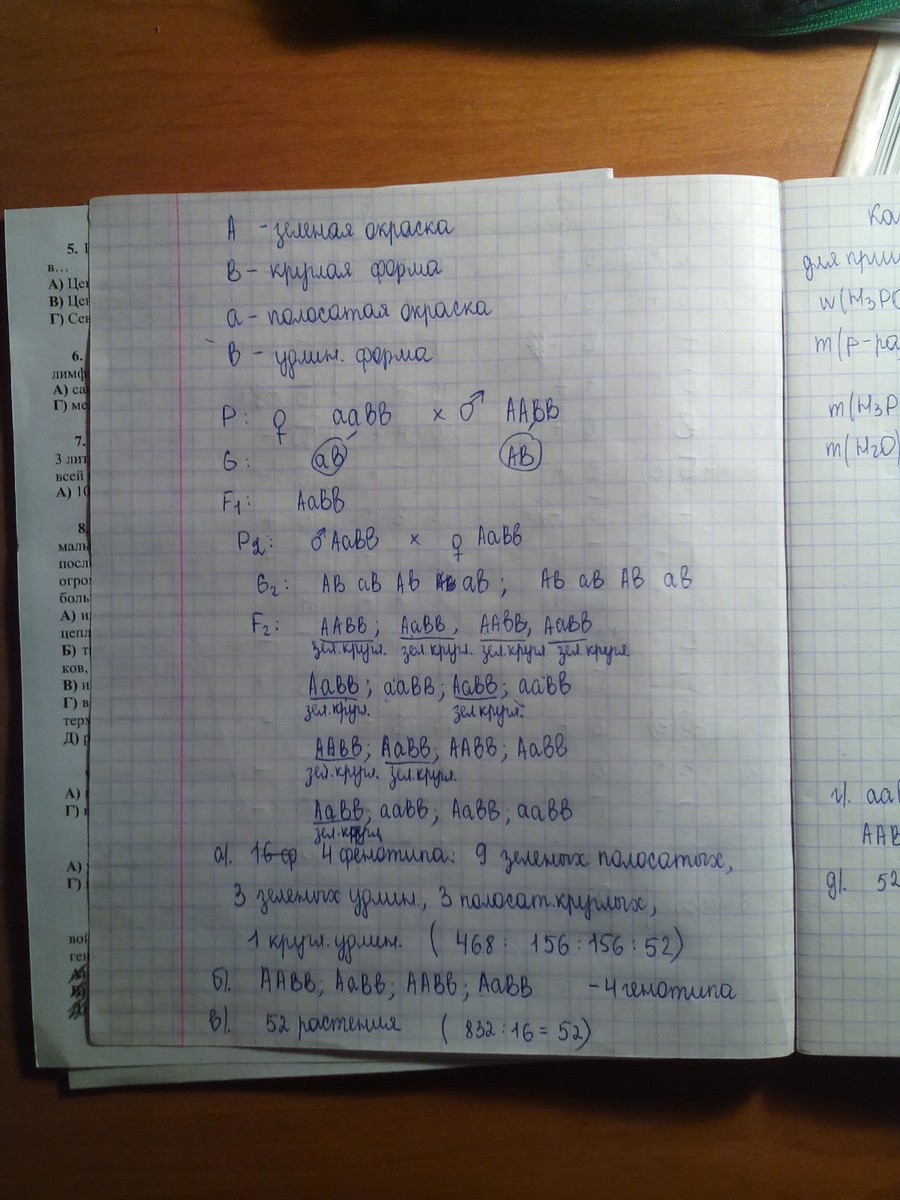 5.
в...
А) Це
В) Це
Г) Сен
6.
лимф
А) са
Г) ме
7.
3 лит
всей
А) 10
8
маль
посл
огро
боль
А) н
цепл
Б) т
ков,
В) и
Г) в
терм
Д) р
А)
Г)
А)
Г)
вой
ген
А - зеленая окраска
В - круглая форма
а - полосатая окраска
в - удлин. форма
P: ♀ ааВВ × ♂ ААвв
G: аВ Ав
F₁: АаВв
P₂: ♂ АаВв × ♀ АаВв
G₂: АВ аВ Ав ав ; АВ аВ Ав ав
F₂: ААВВ; АаВВ, ААВв, АаВв
зел.кругл. зел.кругл. зел.кругл зел.кругл
АаВВ; ааВВ; АаВв; ааВв
зел.кругл. зел.кругл.
ААВв; АаВв; ААвв; Аавв
зел.кругл. зел.кругл.
АаВв; ааВв; Аавв; аавв
зел.кругл
а). 4 фенотипа: 9 зеленых полосатых,
3 зеленых удлин., 3 полосат.круглых,
1 кругл.удлин. (468 : 156 : 156 : 52)
б). ААВВ; АаВВ; ААВв; АаВв - 4 генотипа
в). 52 растения (832 : 16 = 52)
для при
w(H₃P
m(р-ра
m(H₃P
m(H₂O)
г). аа
АА
д). 52